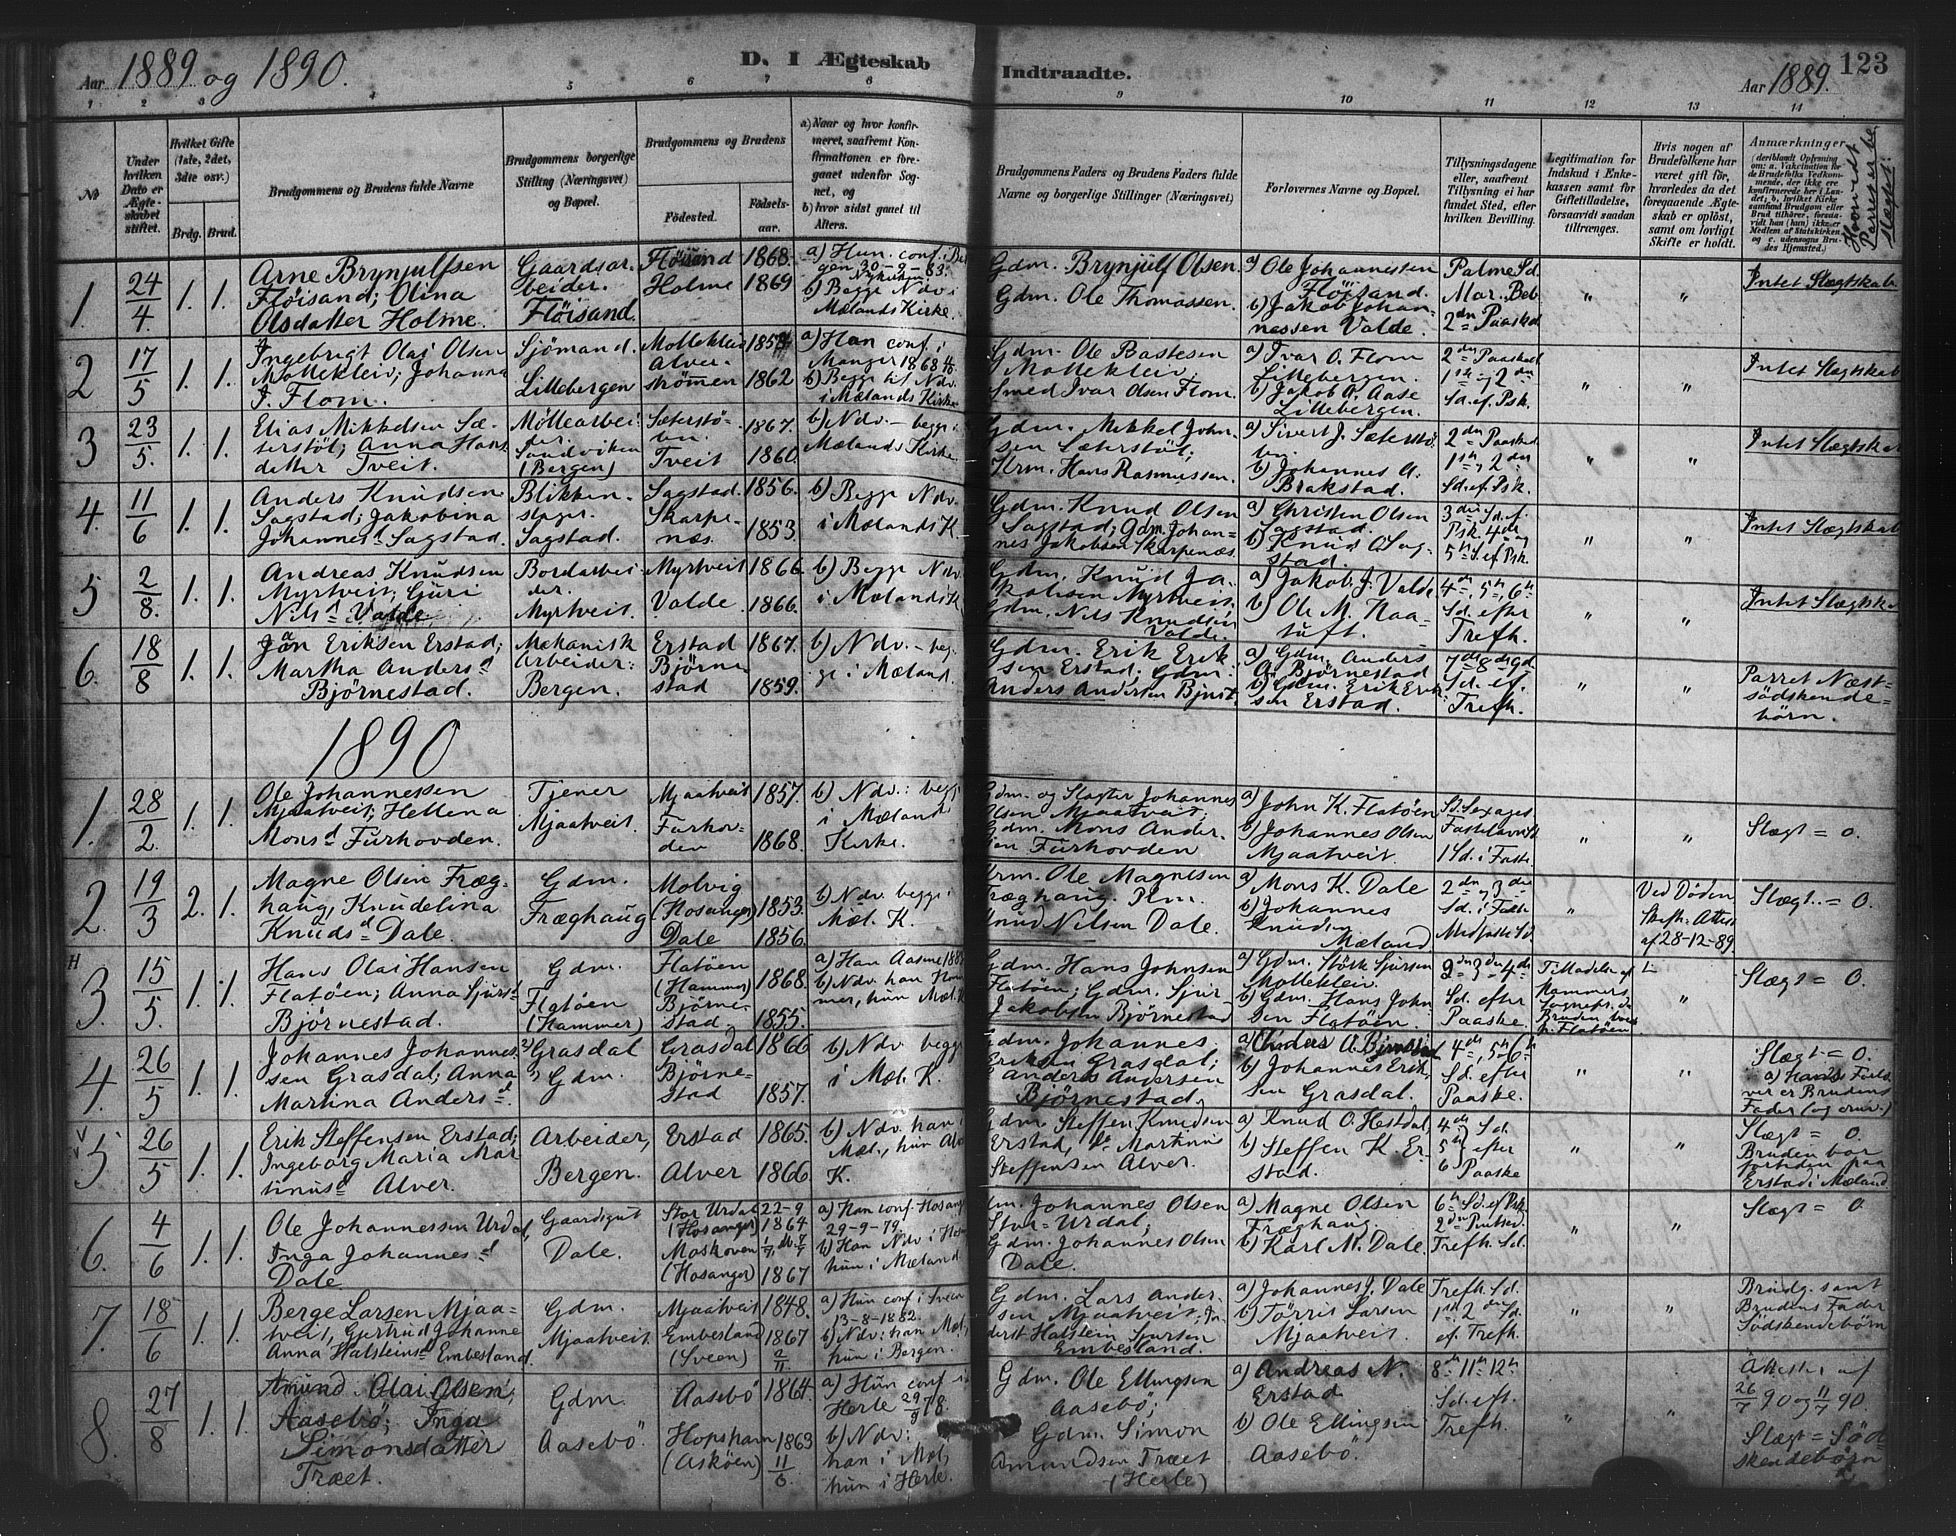 Aar 1889 og 1890.
D. I Ægteskab Indtraadte.
Aar 1889.
123
1 2 3 4 5 6 7 8 9 10 11 12 13 14
Nr.
Under hvilken Dato er Ægteskabet stiftet.
Hvilket Gifte (1ste, 2det, 3dte osv.)
Brdg. Brud.
Brudgommens og Brudens fulde Navne
Brudgommens borgerlige Stilling (Næringsvei) og Bopæl.
Brudgommens og Brudens
Fødested.
Fødselsaar.
a) Naar og hvor konfirmeret, saafremt Konfirmationen er foregaaet udenfor Sognet, og
b) hvor sidst gaaet til Alters.
Brudgommens Faders og Brudens Faders fulde Navne og borgerlige Stillinger (Næringsvei)
Forlovernes Navne og Bopæl.
Tillysningsdagene eller, saafremt Tillysning ei har fundet Sted, efter hvilken Bevilling.
Legitimation for Indskud i Enkekassen samt for Giftetilladelse, forsaavidt saadan tiltrænges.
Hvis nogen af Brudefolkene har været gift før, hvorledes da det foregaaende Ægteskab er opløst, samt om lovligt Skifte er holdt.
Anmærkninger
Hvorvidt Parret er be slægtet:
1. 24/4 1. 1.
Arne Brynjulfsen
Flöisand; Olina
Olsdatter Holme.
Gaardsar-
beider.
Flöisand.
Flöisand 1868.
Holme 1869
a) Hun. conf. i Ber
gen 30-9-83.
Nykirken
b) Begge Ndv. i
Mælands Kirke.
Gdm. Brynjülf Olsen.
Gdm. Ole Thomassen.
a) Ole Johannessen
Flöisand.
b) Jakob Johan-
nessen Valde.
Palme Sd.
Mar. Beb.
2den Paaskd
" "
Intet Slægtskab
2 17/5 1. 1.
Ingebrigt Olai Olsen
Mollekleiv; Johanna
I. Flom.
Sjömand.
Lillebergen
Mollekleiv
Alver-
strømen 1862
a) Han conf. i
Manger 1868
b) Begge til Ndv.
i Mælands Kirke
Gdm. Ole Bastesen
Mollekleiv;
Smed Ivar Olsen Flom.
a) Ivar O. Flom
Lillebergen.
b) Jakob A. Aase
Lillebergen.
2den Paaskd
1ste, 2den
Sd. ef. Psk.
" "
Intet Slægtskab
3 23/5. 1. 1.
Elias Mikkelsen Sæ-
terstöl; Anna Hans
datter Tveit.
Møllearbei-
der.
Sandviken
(Bergen)
Sæterstö-
len. 1867.
Tveit 1860.
b) Ndv. - begge i
Mælands Kirke.
Gdm. Mikkel John-
sen Sæterstöl;
Hrm. Hans Rasmussen.
a) Sivert J. Sæterstö
len.
b) Johannes A.
Brakstad.
2den Paaskd.
1ste, 2den
Sd. ef. Psk.
" "
Intet Slægtskab
4. 11/6 1. 1.
Anders Knudsen
Sagstad; Jakobina
Johannesd Sagstad.
Blikken-
slager.
Sagstad.
Sagstad. 1856.
Skarpe-
næs. 1853.
b) Begge Ndv.
i Mælands K.
Gdm. Knud Olsen
Sagstad; Gdm. Johan-
nes Jakobsen Skarpenæs.
a) Christen Olsen
Sagstad.
b) Knud O. Sag-
stad.
3die Sd. ef.
Psk. 4de og
5te S. ef Psk.
" "
Intet Slægtskab
5 2/8. 1. 1.
Andreas Knudsen
Myrtveit; Guri
Nilsd Valde
Bordarbei-
der.
Myrtveit.
Myrtveit 1866.
Valde. 1866.
b) Begge Ndv.
i Mælands K
Gdm. Knud Ja-
kobsen Myrtveit.
Gdm. Nils Knudsen
Valde.
a) Jakob J. Valde
b) Ole M. Naa-
tuft.
4de, 5te, 6te
Sd. efter
Trefh.
" "
Intet Slægtskab
6. 18/8 1. 1.
Jan Eriksen Erstad;
Martha Andersd
Björnestad.
Mekanisk
Arbeider:
Bergen.
Erstad 1867.
Björne-
stad 1859.
b) Ndv. - beg-
ge i Mæland.
Gdm. Erik Erik-
sen Erstad; Gdm.
Anders Andersen Bjnst.
a) Gdm. Anders
A. Björnestad
b) Gdm. Erik Erik
sen Erstad.
7de 8de 9de
Sd. ef.
Trefh.
" "
Parret Næst-
södskende-
börn.
1890
1. 28/2. 1. 1.
Ole Johannessen
Mjaatveit; Hellena
Monsd Furhovden.
Tjener
Mjaatveit.
Mjaatveit 1857.
Furhov-
den 1868.
b) Ndv.: begge
i Mæland
Kirke.
Gdm. og Slagter Johannes
Olsen Mjaatveit;
Gdm. Mons Ander-
sen Furhovden
a) John K. Flatöen
b) Johannes Olsen
Mjaatveit.
St. Sexages
1 Sd. i Faste
" "
Slægt = 0.
2. 19/3 2. 1.
Magne Olsen Fræg-
haug, Knudelina
Knudsd Dale.
Gdm.
Fræghaug
Molvig
(Hosanger) 1853.
Dale 1856.
b) Ndv. begge i
Mæl. K.
Hrm. Ole Magnesen
Fræghaug. Plm.
Knud Nilsen Dale.
a) Mons K. Dale
b) Johannes
Knudsen
Mæland
2den, 3die
Sd. i Faste
Midfaste Sd.
"
Ved Døden
Skifte Attest
af 28-12-89.
Slægt. = 0.
H 3. 15/5. 1. 1.
Hans Olai Hansen
Flatöen; Anna Sjursd
Björnestad.
Gdm.
Flatöen
(Hammer)
Flatöen
(Hammer) 1868.
Björne-
stad 1855.
Gdm. Hans Johnsen
Flatöen; Gdm. Sjur
Jakobsen Björnestad
a) Gdm. Störk Sjursen
Mollekleiv.
b) Gdm. Hans John-
sen Flatöen.
2den 3die 4de
Sd. efter
Paaske.
Tilladelse af
Hammers
"
Slægt = 0.
4. 26/5 1. 1.
Johannes Johannes-
sen Grasdal; Anna
Martina Andersd.
Grasdal
Gdm.
Grasdal 1866
Björne-
stad 1857.
b) Ndv begge
i Mæl. K.
Gdm. Johannes
Eriksen Grasdal;
Anders Andersen
Björnestad.
a) Anders A. Bjrnestad
b) Johannes Erik-
sen Grasdal.
4de, 5te 6te
Sd. efter
Paaske.
" "
Slægt = 0.
Fader
5 26/5 1. 1.
Erik Steffensen Erstad;
Ingeborg Maria Mar
tinusd Alver.
Arbeider,
Bergen.
Erstad 1865.
Alver 1866.
b) Ndv. han i
Mæl., hun Alv
K.
Gdm Steffen Knudsen
Erstad, do Martinus
Steffensen Alver.
a) Knud O. Hestdal
b) Steffen K. Er-
stad.
4de Sd.
5te efter
6 Paaske
" "
Slægt = 0.
Bruden bor
fortiden paa
Erstad i Mæland
6. 4/6 1. 1.
Ole Johannessen Urdal,
Inga Johannesd
Dale
Gaardsgut
Dale.
Stor Urdal
(Hosanger) 22-9 1864
Moskoven
(Hosanger) 1867
a) Han conf. Hosang
29-9-79.
b) Han Ndv i Hos
hun i Mæland
Gdm. Johannes Olsen
Stor-Urdal;
Gdm. Johannes Olsen
Dale.
a) Magne Olsen
Fræghaug.
b) Karl M. Dale.
6te Sd. ef Psk
2den Pintsed.
Trefh. Sd.
" "
Slægt = 0
7. 18/6 1. 1.
Berge Larsen Mjaa-
tveit, Gjertrud Johanne
Anna Halsteinsd Embesland.
Gdm.
Mjaatveit.
Mjaatveit 1848.
Embesland 1867
(Sveen) 2/11
a) Hun conf. i Sveen
13-8-1882.
b) Ndv: han Mæl.,
hun i Bergen.
Gdm. Lars Ander-
sen Mjaatveit; In
derst Halstein Sjursen
Embesland.
a) Johannes J. Dale
b) Törris Larsen
Mjaatveit.
Trefh. Sd.
1ste, 2den Sd.
ef. Trefh.
" "
Brudg. samt
Brudens Fader
Södskendebörn
8. 27/8 1. 1.
Amund Olai Olsen
Aasebö; Inga
Simonsdatter
Træet.
Gdm.
Aasebö.
Aasebö 1864.
Hopsham 1863
(Asköen) 11/6
a) Hun conf i
Herle 29/9 78.
b) Ndv:
han i Mæl,
hun i Herle.
Gdm. Ole Ellingsen
Aasebö;
Gdm. Simon
Amundsen Træet
(Herle)
a) Andreas N.
Erstad
b) Ole Ellingsen
Aasebö.
8de 11te 12te
Sd. eft.
Trefh.
" "
Attester af
26/7 90 og 11/7 90.
Slægt = Söd-
skendebörn